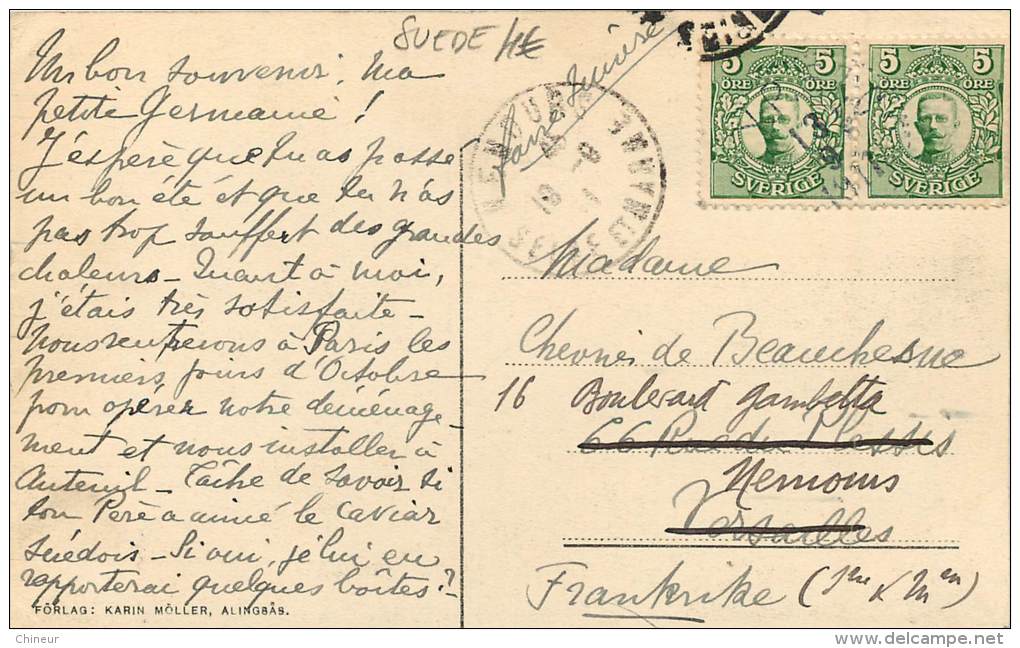 SUEDE /1€
Un bon souvenir, ma
petite Germaine !
J'espère que tu as passé
un bon été et que tu n'as
pas trop souffert des grandes
chaleurs - Quant à moi,
j'étais très satisfaite -
nous rentrerons à Paris les
premiers jours d'Octobre
pour opérer notre déménage
ment et nous installer à
Auteuil - Tâche de savoir si
ton Père a aimé le caviar
suédois - Si oui, je lui en
rapporterai quelques boîtes ?
FÖRLAG: KARIN MÖLLER, ALINGSÅS.
faire suivre
5 5
ÖRE ÖRE
SVERIGE
5 5
ÖRE ÖRE
SVERIGE
Madame
de Beauchesne
16 Boulevard Gambetta
66 Rue du Plessis
Nemours
Versailles
Frankrike (Sne & Mne)
Chineur
www.delcampe.net